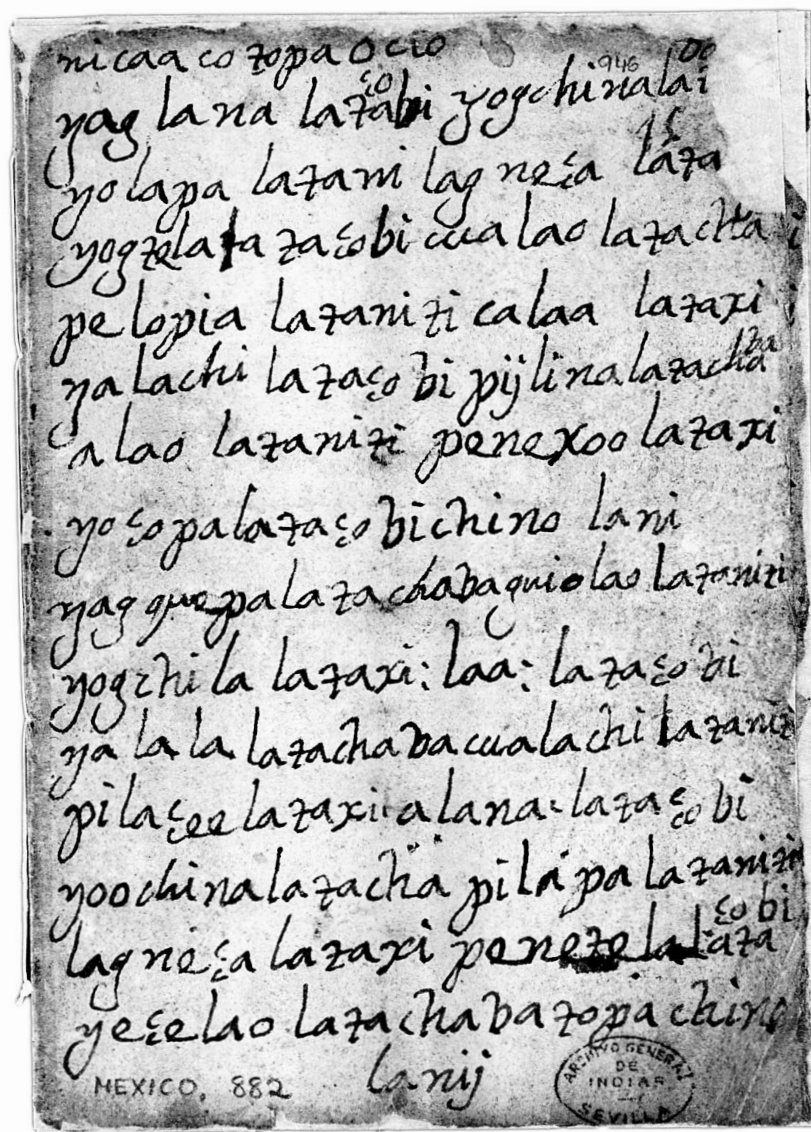 nicaa co zopa ocio
946
yag lana lazaçobi yogchinalai
yolapa lazani lag neça laza
yogzela laza çobi cua lao lazacha
pelopia lazanizi calaa lazaxi
yalachi lazaço bi pijlina lazachaba
alao lazanizi penexoo lazaxi
yo çopalaza ço bichino lani
yag quepalaza chabaquiolao lazanizi
yogchila lazaxi: laa: laza ço bi
ya la la lazachaba cualachi lazaniz
pilaçee lazaxi: alana: laza ço bi
yoochinalazacha pilapa lazanizi
lagneça lazaxi penezelalaza çobi
yeçelao lazachaba zopachino
lanij
MEXICO, 882
ARCHIVO GENERAL DE INDIAS SEVILLA